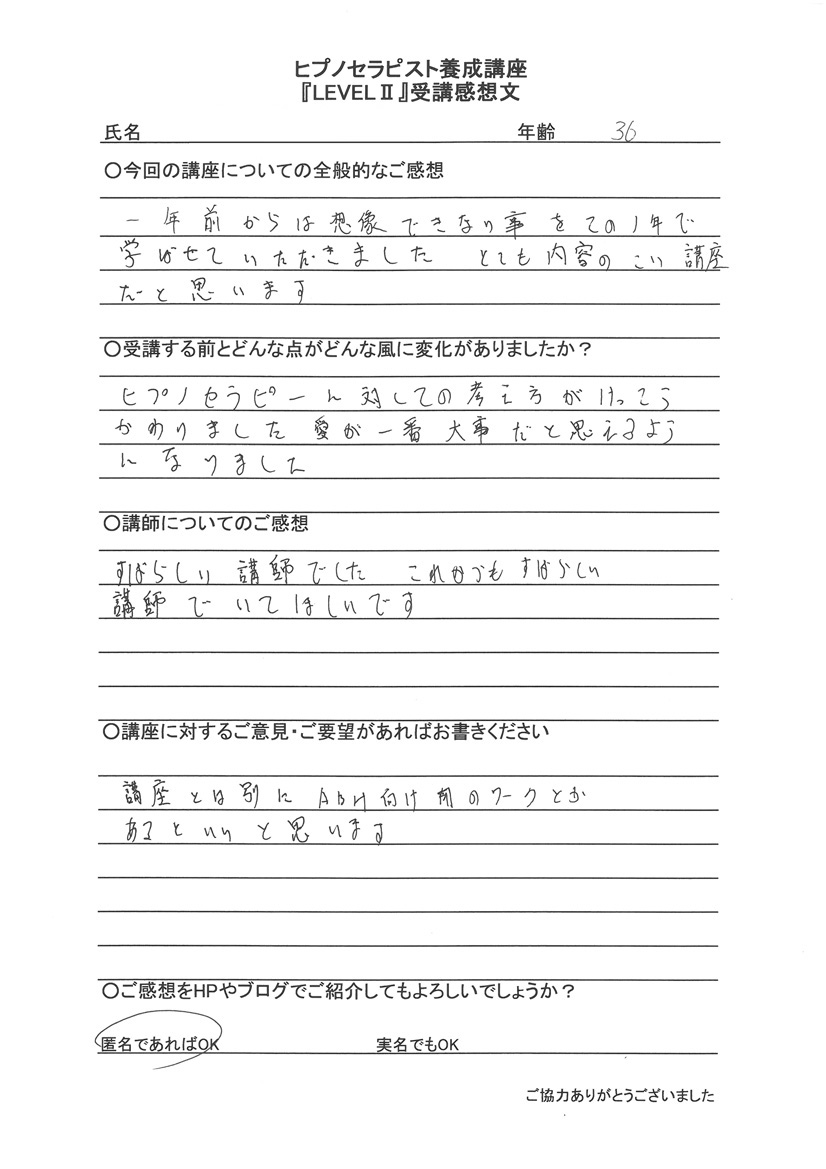 ヒプノセラピスト養成講座
『LEVELⅡ』受講感想文
氏名 年齢 36
〇今回の講座についての全般的なご感想
一年前からは想像できない事をこの1年で
学ばせていただきました とても内容のこい講座
だと思います
〇受講する前とどんな点がどんな風に変化がありましたか？
ヒプノセラピーに対しての考え方がけっこう
かわりました 愛が一番大事だと思えるよう
になりました
〇講師についてのご感想
すばらしい講師でした これからもすばらしい
講師でいてほしいです
〇講座に対するご意見・ご要望があればお書きください
講座とは別に ABH向け のワークとか
あるといいと思います
〇ご感想をHPやブログでご紹介してもよろしいでしょうか？
匿名であればOK 実名でもOK
ご協力ありがとうございました